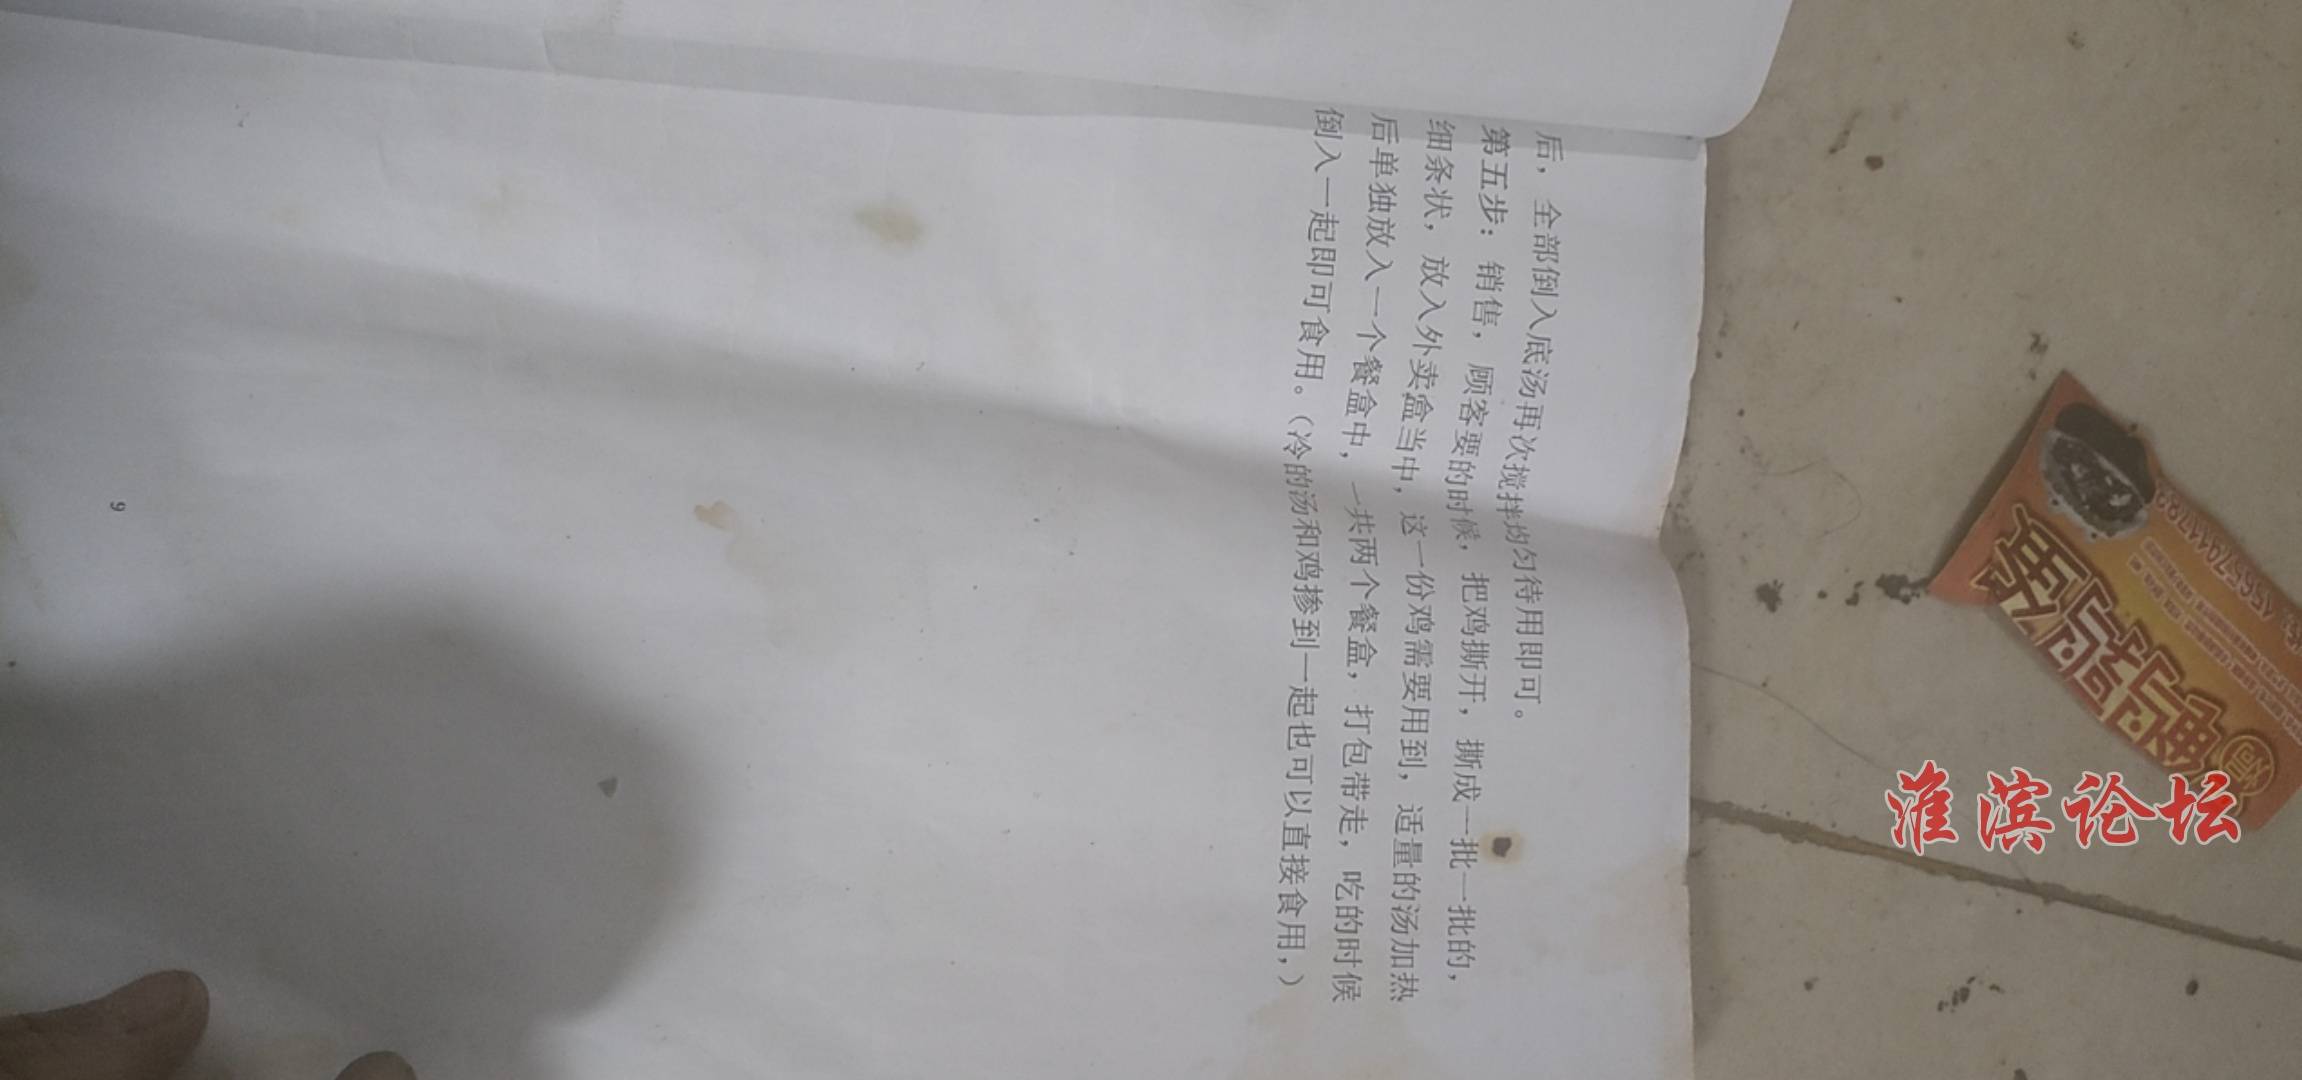 后，全部倒入底汤再次搅拌均匀待用即可。
第五步：销售，顾客要的时候，把鸡撕开，撕成一批一批的，
细条状，放入外卖盒当中，这一份鸡需要用到，适量的汤加热
后单独放入一个餐盒中，一共两个餐盒，打包带走，吃的时候
倒入一起即可食用。（冷的汤和鸡掺到一起也可以直接食用，）
9
淮滨论坛